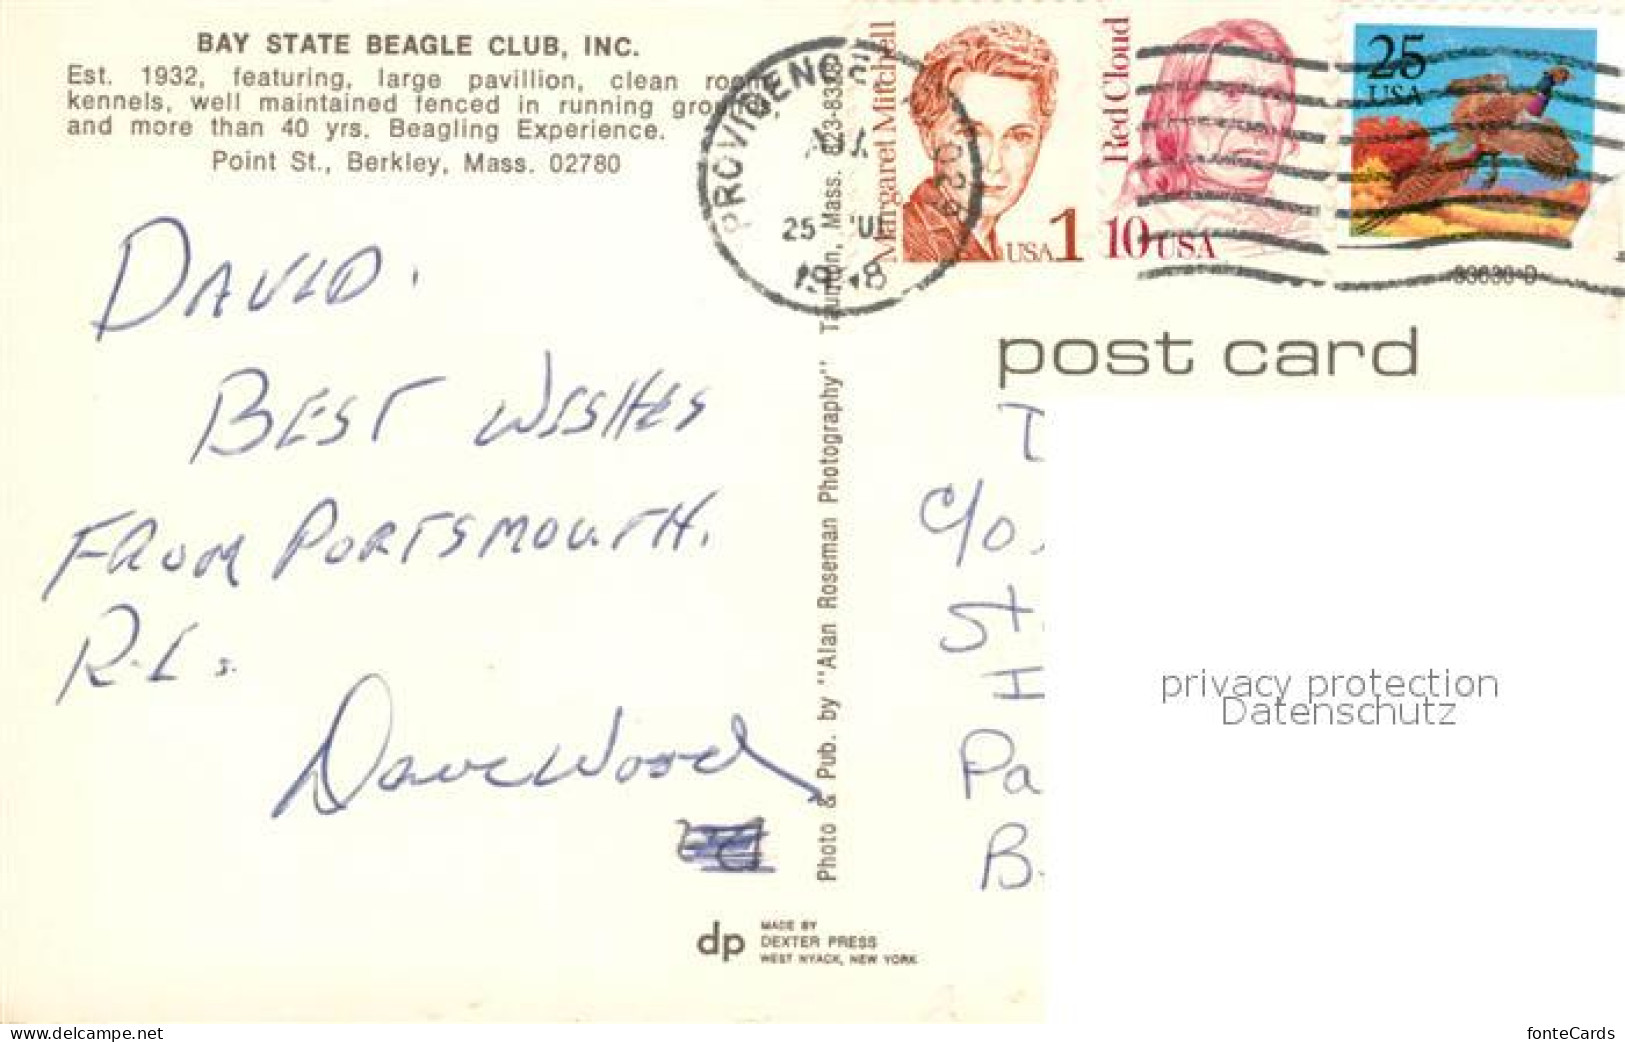 BAY STATE BEAGLE CLUB, INC.
Est. 1932, featuring, large pavillion, clean
kennels, well maintained fenced in running
and more than 40 yrs. Beagling Experience.
Point St., Berkley, Mass. 02780
PROVIDENC
25
Margaret Mitchell
USA 1
Red Cloud
10 USA
25
USA
post card
DAVID.
BEST WISHES
FROM PORTSMOUTH.
R.I.
Dave Wood
Photo & Pub. by "Alan Roseman Photography" Taunton, Mass.
c/o.
St
Pa
B.
privacy protection
Datenschutz
dp
MADE BY
DEXTER PRESS
WEST NYACK, NEW YORK
www.delcampe.net
fonteCards